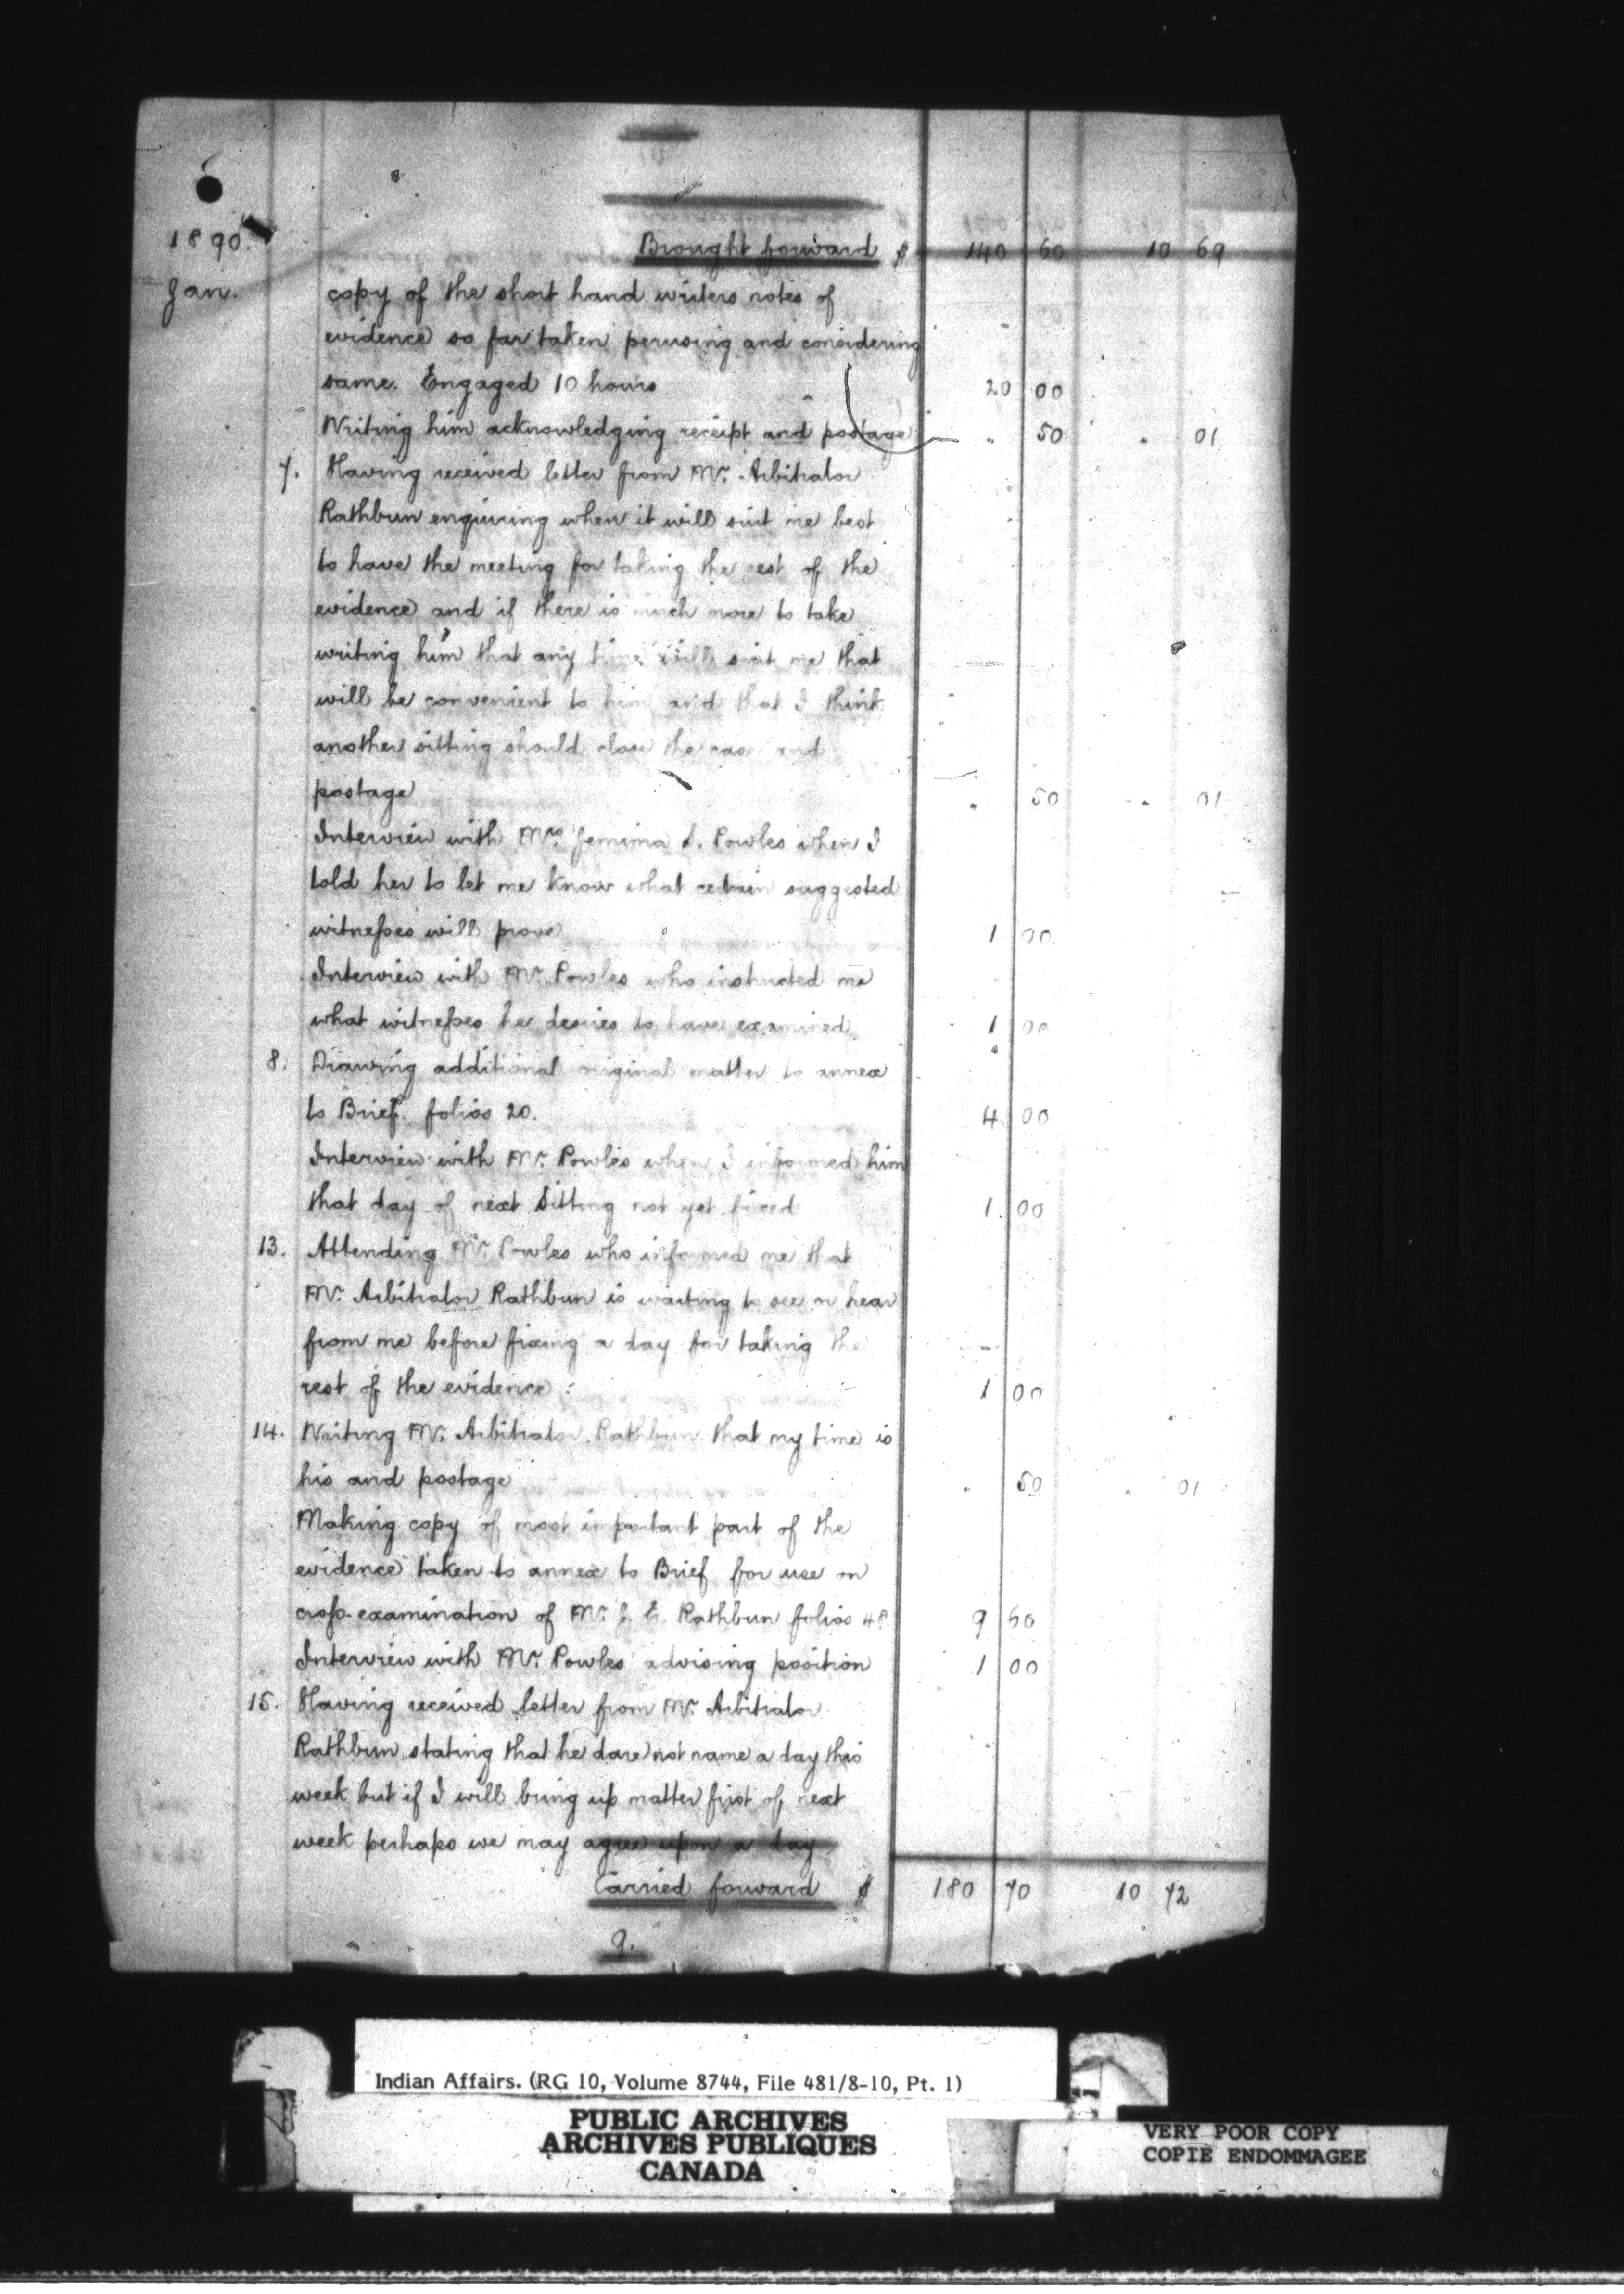 1890. Brought forward $ 140 60 10 69
Jan. copy of the short hand writers notes of
evidence so far taken perusing and considering
same. Engaged 10 hours 20 00
Writing him acknowledging receipt and postage " 50 " 01
7. Having received letter from Mr. Arbitrator
Rathbun enquiring when it will suit me best
to have the meeting for taking the rest of the
evidence and if there is much more to take
writing him that any time will suit me that
will be convenient to him and that I think
another sitting should close the case and
postage " 50 " 01
Interview with Mrs. Jemima S. Powles when I
told her to let me know what certain suggested
witnesses will prove 1 00
Interview with Mr. Powles who instructed me
what witnesses he desires to have examined 1 00
8. Drawing additional original matter to annex
to Brief. folios 20. 4 00
Interview with Mr. Powles when I informed him
that day of next Sitting not yet fixed 1 00
13. Attending Mr. Powles who informed me that
Mr. Arbitrator Rathbun is waiting to see or hear
from me before fixing a day for taking the
rest of the evidence 1 00
14. Writing Mr. Arbitrator Rathbun that my time is
his and postage " 50 " 01
Making copy of most important part of the
evidence taken to annex to Brief for use on
cross-examination of Mr. J. E. Rathbun folios 48. 9 60
Interview with Mr. Powles advising position 1 00
15. Having received letter from Mr. Arbitrator
Rathbun stating that he dare not name a day this
week but if I will bring up matter first of next
week perhaps we may agree upon a day
Carried forward $ 180 70 10 72
9.
Indian Affairs. (RG 10, Volume 8744, File 481/8-10, Pt. 1)
PUBLIC ARCHIVES
ARCHIVES PUBLIQUES
CANADA
VERY POOR COPY
COPIE ENDOMMAGEE